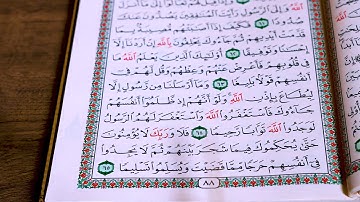 وَإِلَى ٱلرَّسُولِ رَأَيْتَ ٱلْمُنَٰفِقِينَ يَصُدُّونَ عَنكَ
صُدُودًا ٦١
أَيْدِيهِمْ ثُمَّ جَآءُوكَ يَحْلِفُونَ بِٱللَّهِ إِنْ أَرَدْنَآ إِلَّآ
إِحْسَٰنًا وَتَوْفِيقًا ٦٢ أُو۟لَٰٓئِكَ ٱلَّذِينَ يَعْلَمُ ٱللَّهُ مَا
فِى قُلُوبِهِمْ فَأَعْرِضْ عَنْهُمْ وَعِظْهُمْ وَقُل لَّهُمْ فِىٓ
أَنفُسِهِمْ قَوْلًۢا بَلِيغًا ٦٣ وَمَآ أَرْسَلْنَا مِن رَّسُولٍ إِلَّا
لِيُطَاعَ بِإِذْنِ ٱللَّهِ وَلَوْ أَنَّهُمْ إِذ ظَّلَمُوٓا۟ أَنفُسَهُمْ
جَآءُوكَ فَٱسْتَغْفَرُوا۟ ٱللَّهَ وَٱسْتَغْفَرَ لَهُمُ ٱلرَّسُولُ
لَوَجَدُوا۟ ٱللَّهَ تَوَّابًا رَّحِيمًا ٦٤ فَلَا وَرَبِّكَ لَا يُؤْمِنُونَ
حَتَّىٰ يُحَكِّمُوكَ فِيمَا شَجَرَ بَيْنَهُمْ ثُمَّ لَا يَجِدُوا۟
فِىٓ أَنفُسِهِمْ حَرَجًا مِّمَّا قَضَيْتَ وَيُسَلِّمُوا۟ تَسْلِيمًا ٦٥
٨٨